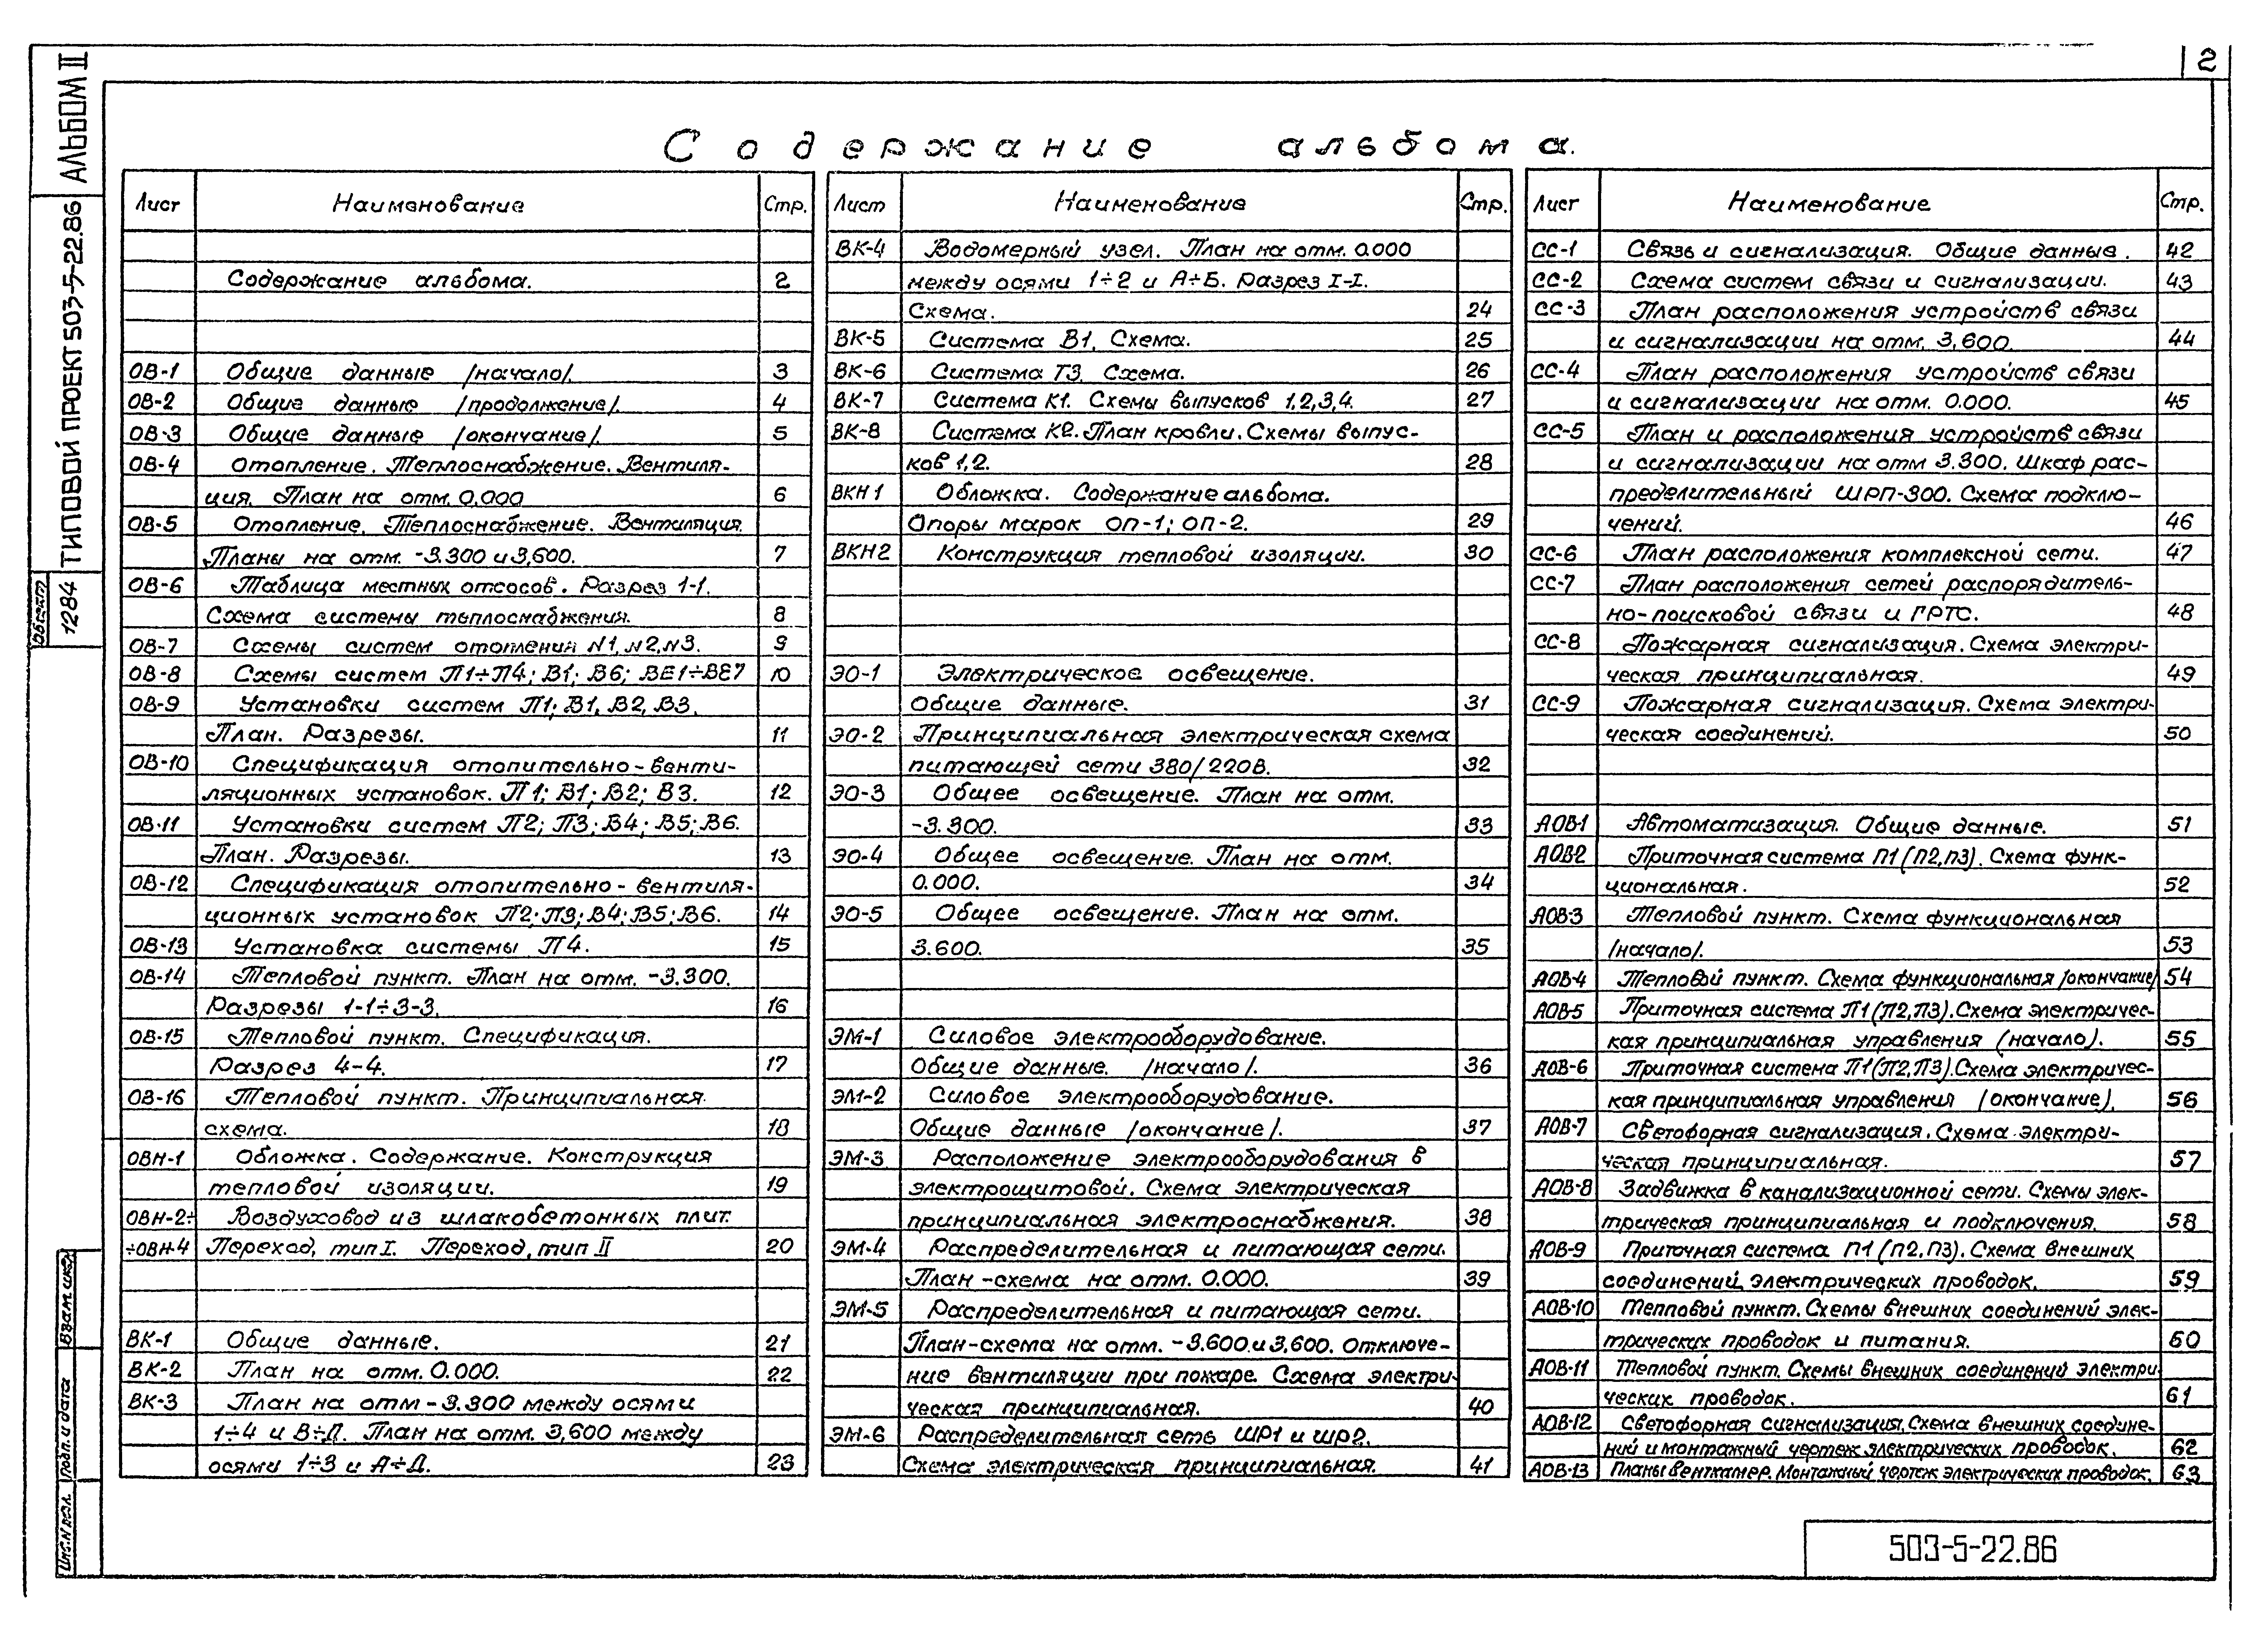 2
АЛЬБОМ II
ТИПОВОЙ ПРОЕКТ 503-5-22.86
Объект 1284
Содержание альбома.
Лист Наименование Стр.
Содержание альбома. 2
ОВ-1 Общие данные /начало/. 3
ОВ-2 Общие данные /продолжение/. 4
ОВ-3 Общие данные /окончание/. 5
ОВ-4 Отопление. Теплоснабжение. Вентиля-
ция. План на отм. 0.000 6
ОВ-5 Отопление. Теплоснабжение. Вентиляция.
Планы на отм. -3.300 и 3,600. 7
ОВ-6 Таблица местных отсосов. Разрез 1-1.
Схема системы теплоснабжения. 8
ОВ-7 Схемы систем отопления N1, N2, N3. 9
ОВ-8 Схемы систем П1÷П4; В1; В6; ВЕ1÷ВЕ7 10
ОВ-9 Установки систем П1; В1, В2, В3.
План. Разрезы. 11
ОВ-10 Спецификация отопительно-венти-
ляционных установок. П1; В1; В2; В3. 12
ОВ-11 Установки систем П2; П3; В4; В5; В6.
План. Разрезы. 13
ОВ-12 Спецификация отопительно-вентиля-
ционных установок П2; П3; В4; В5; В6. 14
ОВ-13 Установка системы П4. 15
ОВ-14 Тепловой пункт. План на отм. -3.300.
Разрезы 1-1÷3-3. 16
ОВ-15 Тепловой пункт. Спецификация.
Разрез 4-4. 17
ОВ-16 Тепловой пункт. Принципиальная
схема. 18
ОВН-1 Обложка. Содержание. Конструкция
тепловой изоляции. 19
ОВН-2÷ Воздуховод из шлакобетонных плит.
÷ОВН-4 Переход, тип I. Переход, тип II 20
ВК-1 Общие данные. 21
ВК-2 План на отм. 0.000. 22
ВК-3 План на отм -3.300 между осями
1÷4 и В÷Д. План на отм. 3,600 между
осями 1÷3 и А÷Д. 23
Лист Наименование Стр.
ВК-4 Водомерный узел. План на отм. 0.000
между осями 1÷2 и А÷Б. Разрез I-I.
Схема. 24
ВК-5 Система В1. Схема. 25
ВК-6 Система Т3. Схема. 26
ВК-7 Система К1. Схемы выпусков 1,2,3,4. 27
ВК-8 Система К2. План кровли. Схемы выпус-
ков 1,2. 28
ВКН1 Обложка. Содержание альбома.
Опоры марок ОП-1; ОП-2. 29
ВКН2 Конструкция тепловой изоляции. 30
ЭО-1 Электрическое освещение.
Общие данные. 31
ЭО-2 Принципиальная электрическая схема
питающей сети 380/220В. 32
ЭО-3 Общее освещение. План на отм.
-3.300. 33
ЭО-4 Общее освещение. План на отм.
0.000. 34
ЭО-5 Общее освещение. План на отм.
3.600. 35
ЭМ-1 Силовое электрооборудование.
Общие данные. /начало/. 36
ЭМ-2 Силовое электрооборудование.
Общие данные /окончание/. 37
ЭМ-3 Расположение электрооборудования в
электрощитовой. Схема электрическая
принципиальная электроснабжения. 38
ЭМ-4 Распределительная и питающая сети.
План-схема на отм. 0.000. 39
ЭМ-5 Распределительная и питающая сети.
План-схема на отм. -3.600 и 3,600. Отключе-
ние вентиляции при пожаре. Схема электри-
ческая принципиальная. 40
ЭМ-6 Распределительная сеть ШР1 и ШР2.
Схема электрическая принципиальная. 41
Лист Наименование Стр.
СС-1 Связь и сигнализация. Общие данные. 42
СС-2 Схема систем связи и сигнализации. 43
СС-3 План расположения устройств связи
и сигнализации на отм. 3,600. 44
СС-4 План расположения устройств связи
и сигнализации на отм. 0.000. 45
СС-5 План и расположения устройств связи
и сигнализации на отм 3.300. Шкаф рас-
пределительный ШРП-300. Схема подклю-
чений. 46
СС-6 План расположения комплексной сети. 47
СС-7 План расположения сетей распорядитель-
но-поисковой связи и ГРТС. 48
СС-8 Пожарная сигнализация. Схема электри-
ческая принципиальная. 49
СС-9 Пожарная сигнализация. Схема электри-
ческая соединений. 50
АОВ-1 Автоматизация. Общие данные. 51
АОВ2 Приточная система П1 (П2, П3). Схема функ-
циональная. 52
АОВ-3 Тепловой пункт. Схема функциональная
/начало/. 53
АОВ-4 Тепловой пункт. Схема функциональная /окончание/ 54
АОВ-5 Приточная система П1 (П2, П3). Схема электричес-
кая принципиальная управления (начало). 55
АОВ-6 Приточная система П1 (П2, П3). Схема электричес-
кая принципиальная управления /окончание/. 56
АОВ-7 Светофорная сигнализация. Схема электри-
ческая принципиальная. 57
АОВ-8 Задвижка в канализационной сети. Схемы элек-
трическая принципиальная и подключения. 58
АОВ-9 Приточная система П1 (П2, П3). Схема внешних
соединений электрических проводок. 59
АОВ-10 Тепловой пункт. Схемы внешних соединений элек-
трических проводок и питания. 60
АОВ-11 Тепловой пункт. Схемы внешних соединений электри
ческих проводок. 61
АОВ-12 Светофорная сигнализация. Схема внешних соедине-
ний и монтажный чертеж электрических проводок. 62
АОВ-13 Планы венткамер. Монтажный чертеж электрических проводок. 63
Взам. инв.
Подп. и дата
Инв. N подл.
503-5-22.86